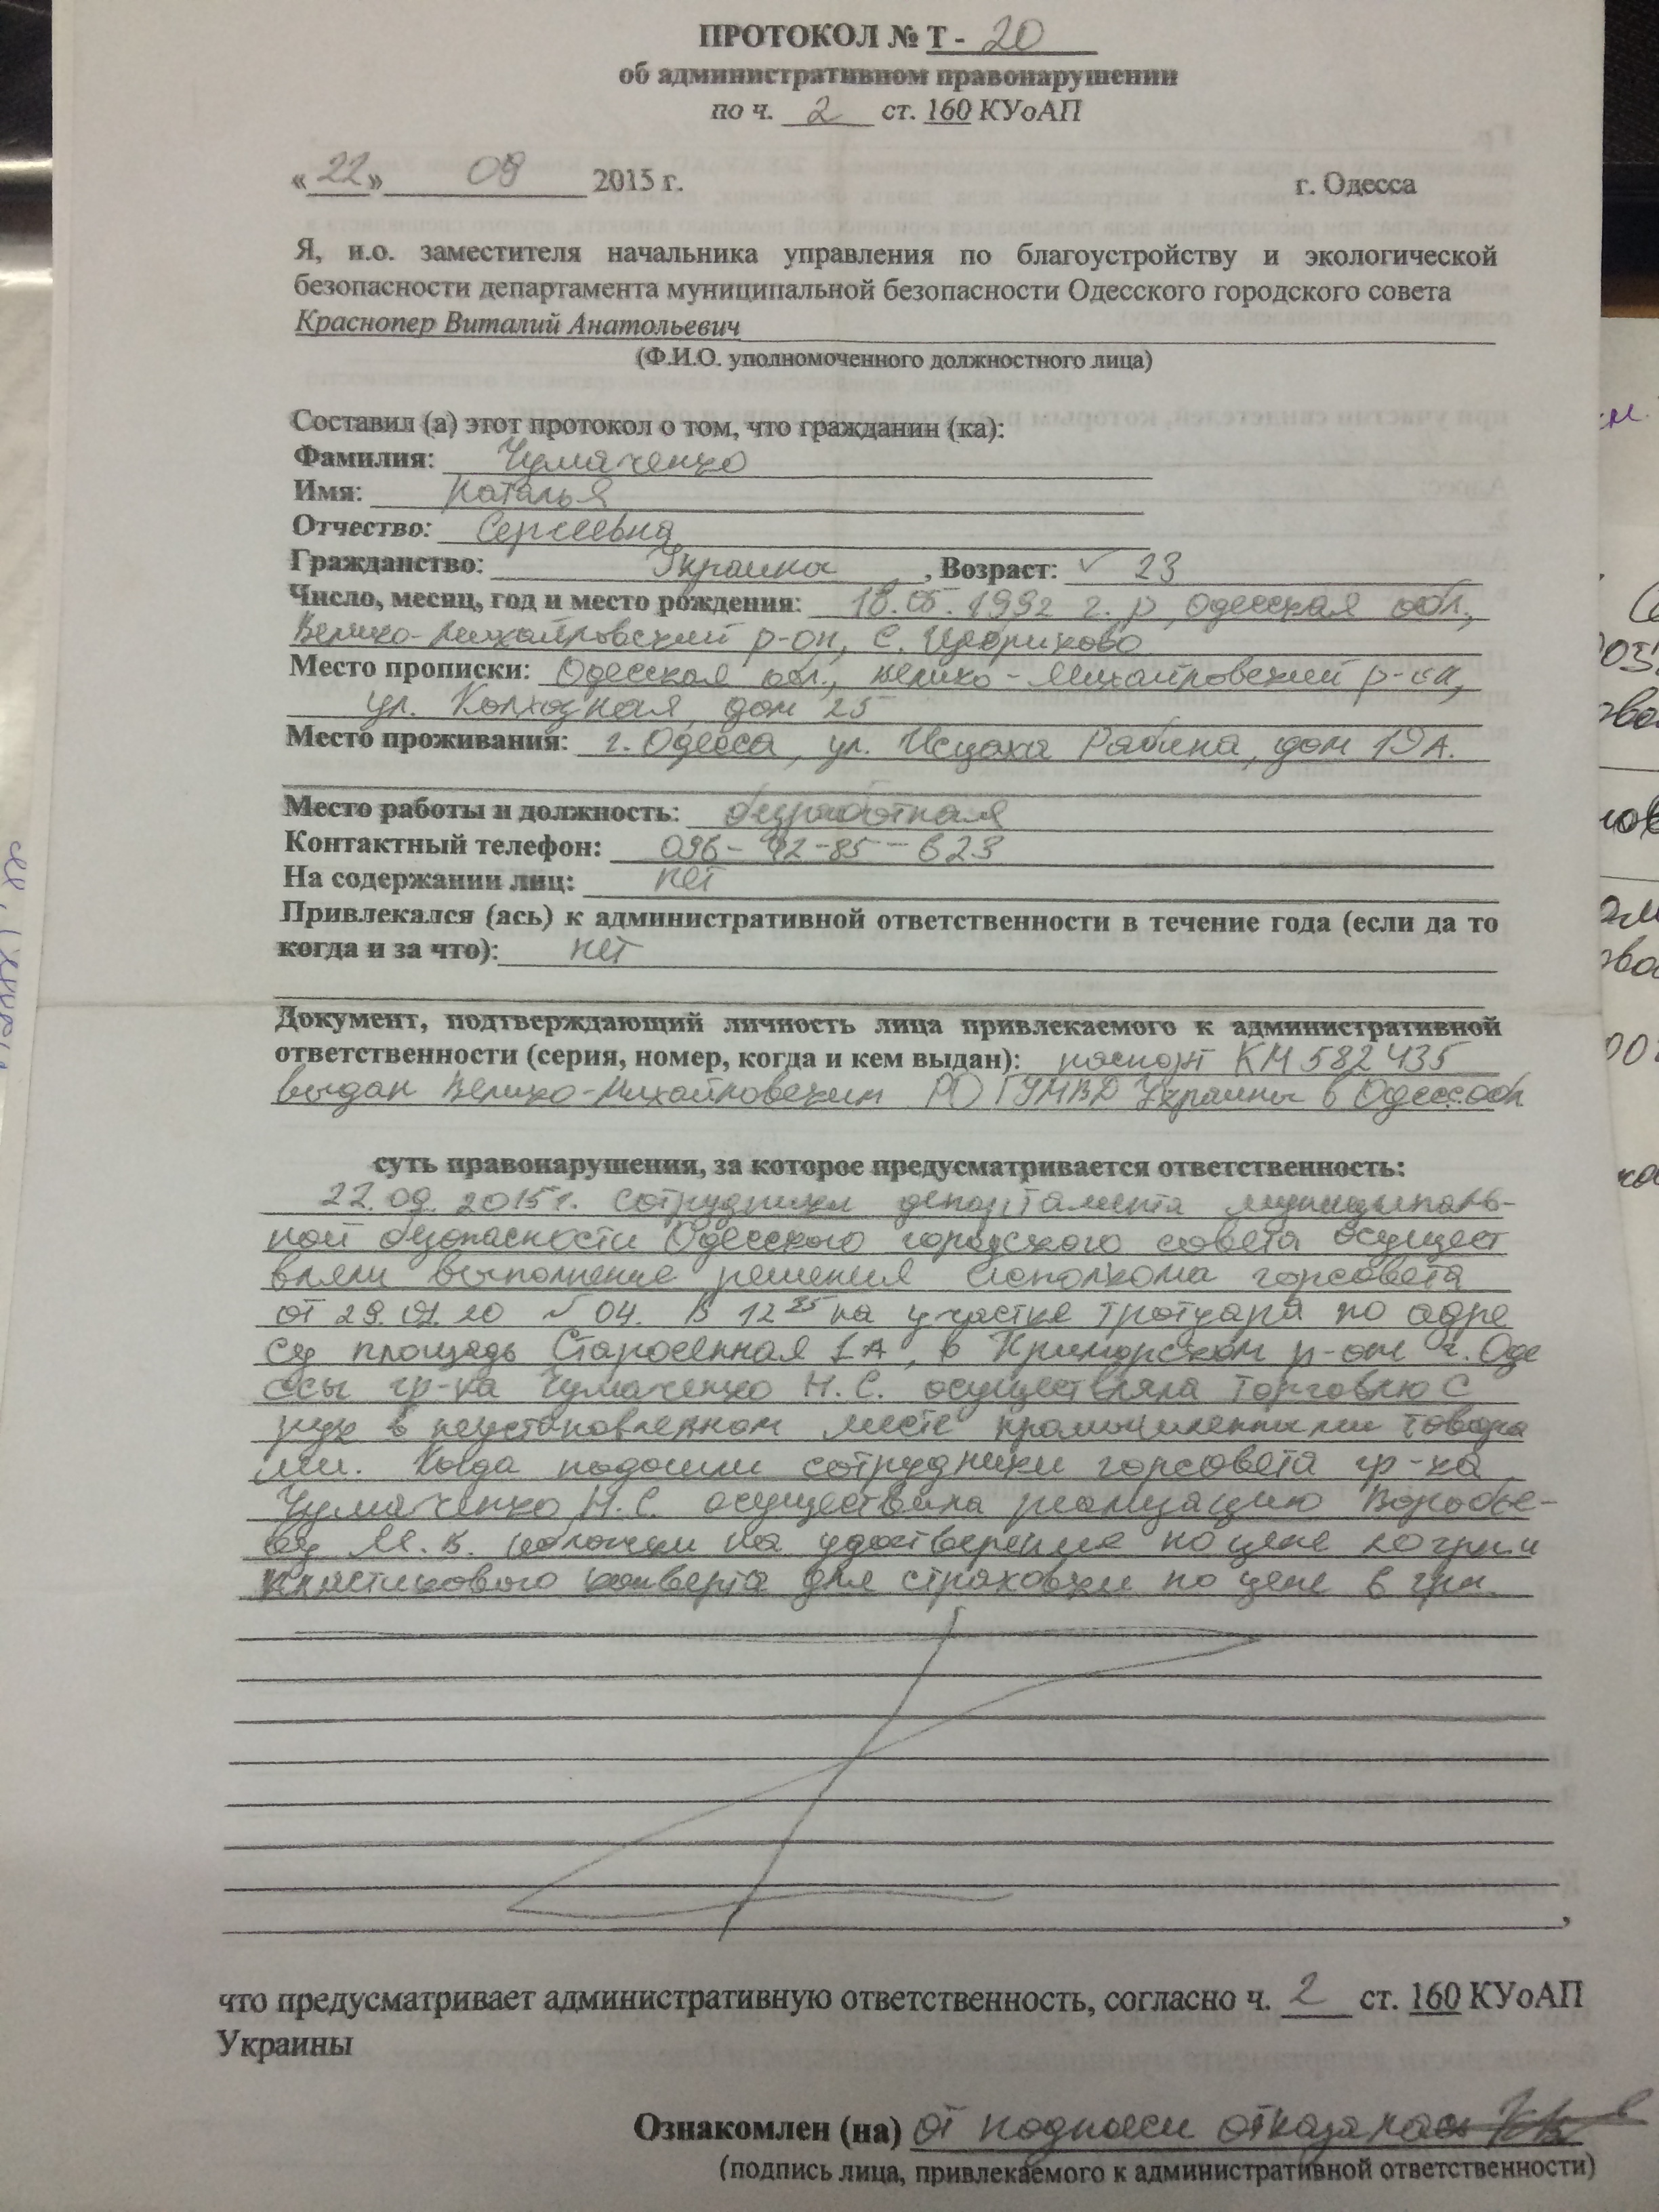 ПРОТОКОЛ № Т - 20
об административном правонарушении
по ч. 2 ст. 160 КУоАП
«22» 09 2015 г. г. Одесса
Я, и.о. заместителя начальника управления по благоустройству и экологической
безопасности департамента муниципальной безопасности Одесского городского совета
Краснопер Виталий Анатольевич
(Ф.И.О. уполномоченного должностного лица)
Составил (а) этот протокол о том, что гражданин (ка):
Фамилия: Чумаченко
Имя: Наталья
Отчество: Сергеевна
Гражданство: Украина, Возраст: 23
Число, месяц, год и место рождения: 18.05.1992 г. р, Одесская обл.,
Велико-Михайловский р-он, с. Цебриково
Место прописки: Одесская обл., Велико-Михайловский р-он,
ул. Колхозная, дом 25
Место проживания: г. Одесса, ул. Ицхака Рабина, дом 19А.
Место работы и должность: безработная
Контактный телефон: 096-42-85-623
На содержании лиц: нет
Привлекался (ась) к административной ответственности в течение года (если да то
когда и за что): нет
Документ, подтверждающий личность лица привлекаемого к административной
ответственности (серия, номер, когда и кем выдан): паспорт КМ 582435
выдан Велико-Михайловским РО ГУМВД Украины в Одесс. обл
суть правонарушения, за которое предусматривается ответственность:
22.09.2015г. сотрудники департамента муниципаль-
ной безопасности Одесского городского совета осущест
вляли выполнение решения исполкома горсовета
от 29. № 04. В 12 35 на участке тротуара по адре
су площадь Старосенная 1А, в Приморском р-он г. Оде
ссы гр-ка Чумаченко Н.С. осуществляла торговлю с
рук в неустановленном месте промышленными товара
ми. Когда подошли сотрудники горсовета гр-ка
Чумаченко Н.С. осуществила реализацию Воробье-
ву М.В. обложки на удостверение по цене 20 грн и
пластикового конверта для страховки по цене 6 грн.
,
что предусматривает административную ответственность, согласно ч. 2 ст. 160 КУоАП
Украины
Ознакомлен (на) от подписи отказалась
(подпись лица, привлекаемого к административной ответственности)